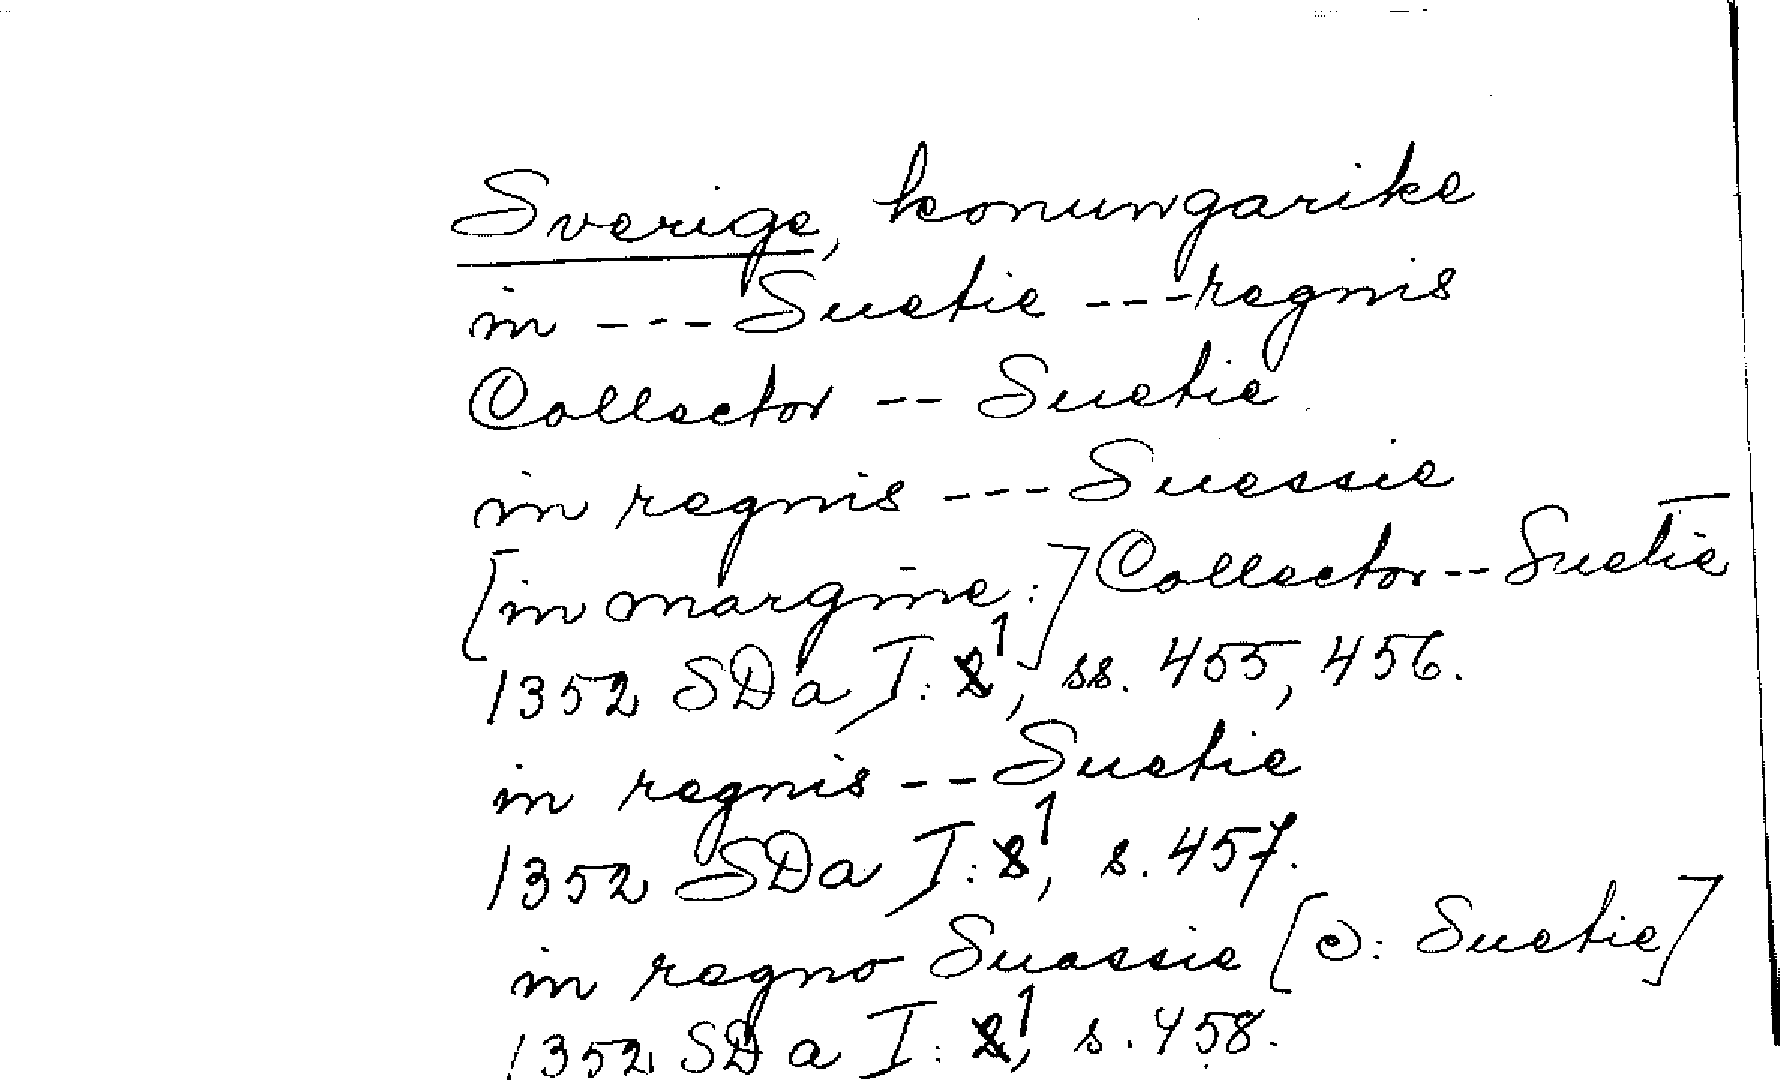 Sverige, konungarike
in --- Suetie --- regnis
Collector -- Suetie
in regnis --- Suessie
[in margine:] Collector -- Suetie
1352 SDa I: 1, ss. 455, 456.
in regnis -- Suetie
1352 SDa I: 1, s. 457.
in regno Suassie [ɔ: Suetie]
1352 SDa I: 1, s. 458.